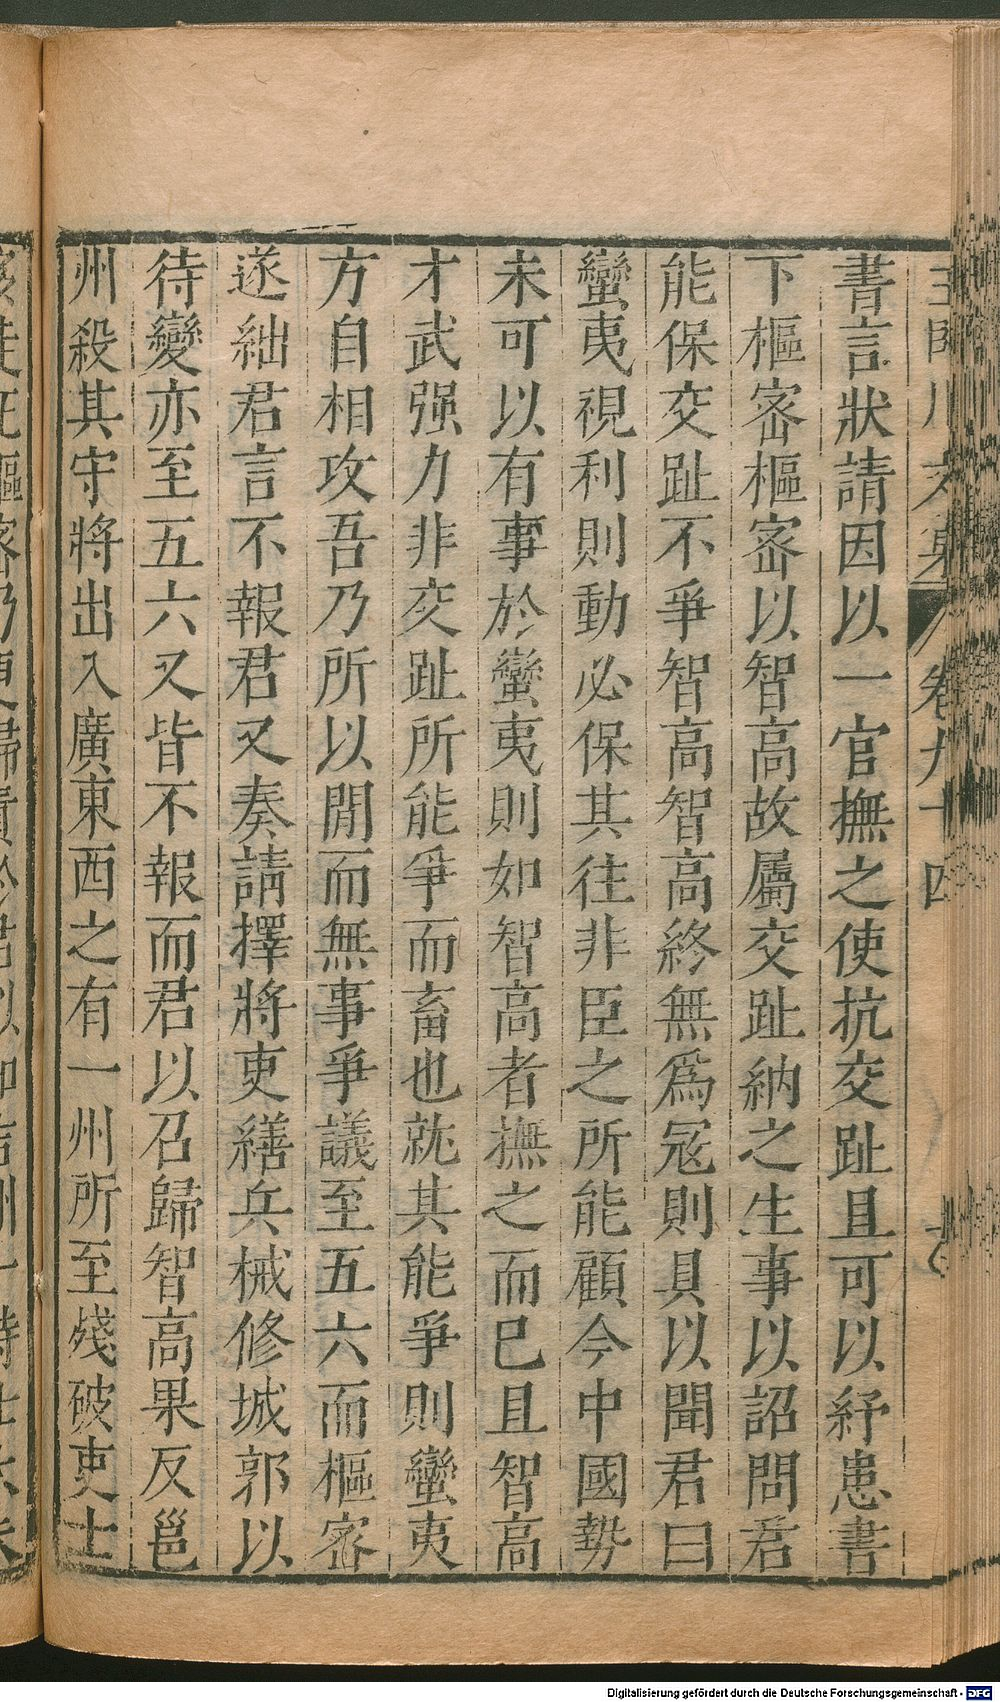 書言狀請因以一官撫之使抗交趾且可以紓患書
下樞密樞密以智高故屬交趾納之生事以詔問君
能保交趾不爭智高智高終無爲冦則具以聞君曰
蠻夷視利則動必保其往非臣之所能顧今中國勢
未可以有事於蠻夷則如智高者撫之而已且智高
才武强力非交趾所能爭而畜也就其能爭則蠻夷
方自相攻吾乃所以閒而無事爭議至五六而樞密
遂絀君言不報君又奏請擇將吏繕兵械修城郭以
待變亦至五六又皆不報而君以召歸智高果反邕
州殺其守將出入廣東西之有一州所至殘破吏士
卷九十四
Digitalisierung gefördert durch die Deutsche Forschungsgemeinschaft - DFG